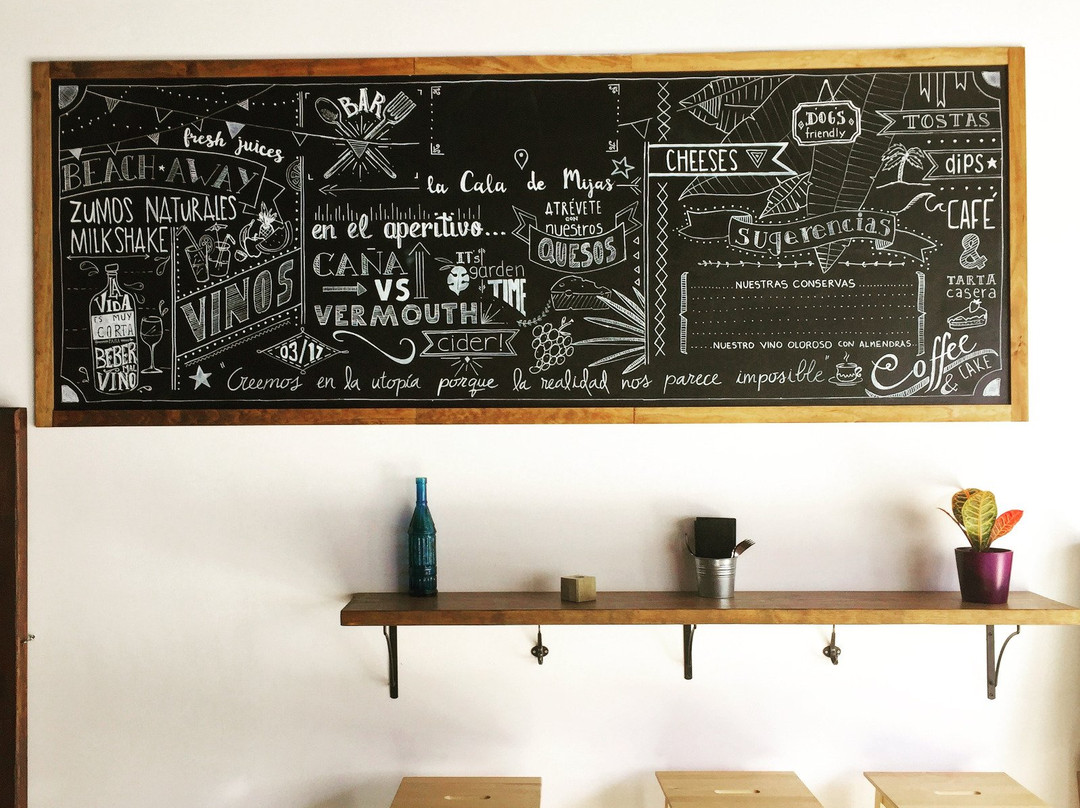 fresh juices
BEACH AWAY
ZUMOS NATURALES
MILKSHAKE
LA
VIDA
ES MUY
CORTA
PARA
BEBER
MAL
VINO
VINOS
03/17
BAR
la Cala de Mijas
en el aperitivo...
CAÑA
VS
VERMOUTH
IT'S
garden
TIME
cider!
ATRÉVETE
CON
nuestros
QUESOS
CHEESES
DOGS
friendly
Sugerencias
NUESTRAS CONSERVAS
NUESTRO VINO OLOROSO CON ALMENDRAS
TOSTAS
dips
CAFÉ
&
TARTA
casera
Coffee
& CAKE
"Creemos en la utopía porque la realidad nos parece imposible"